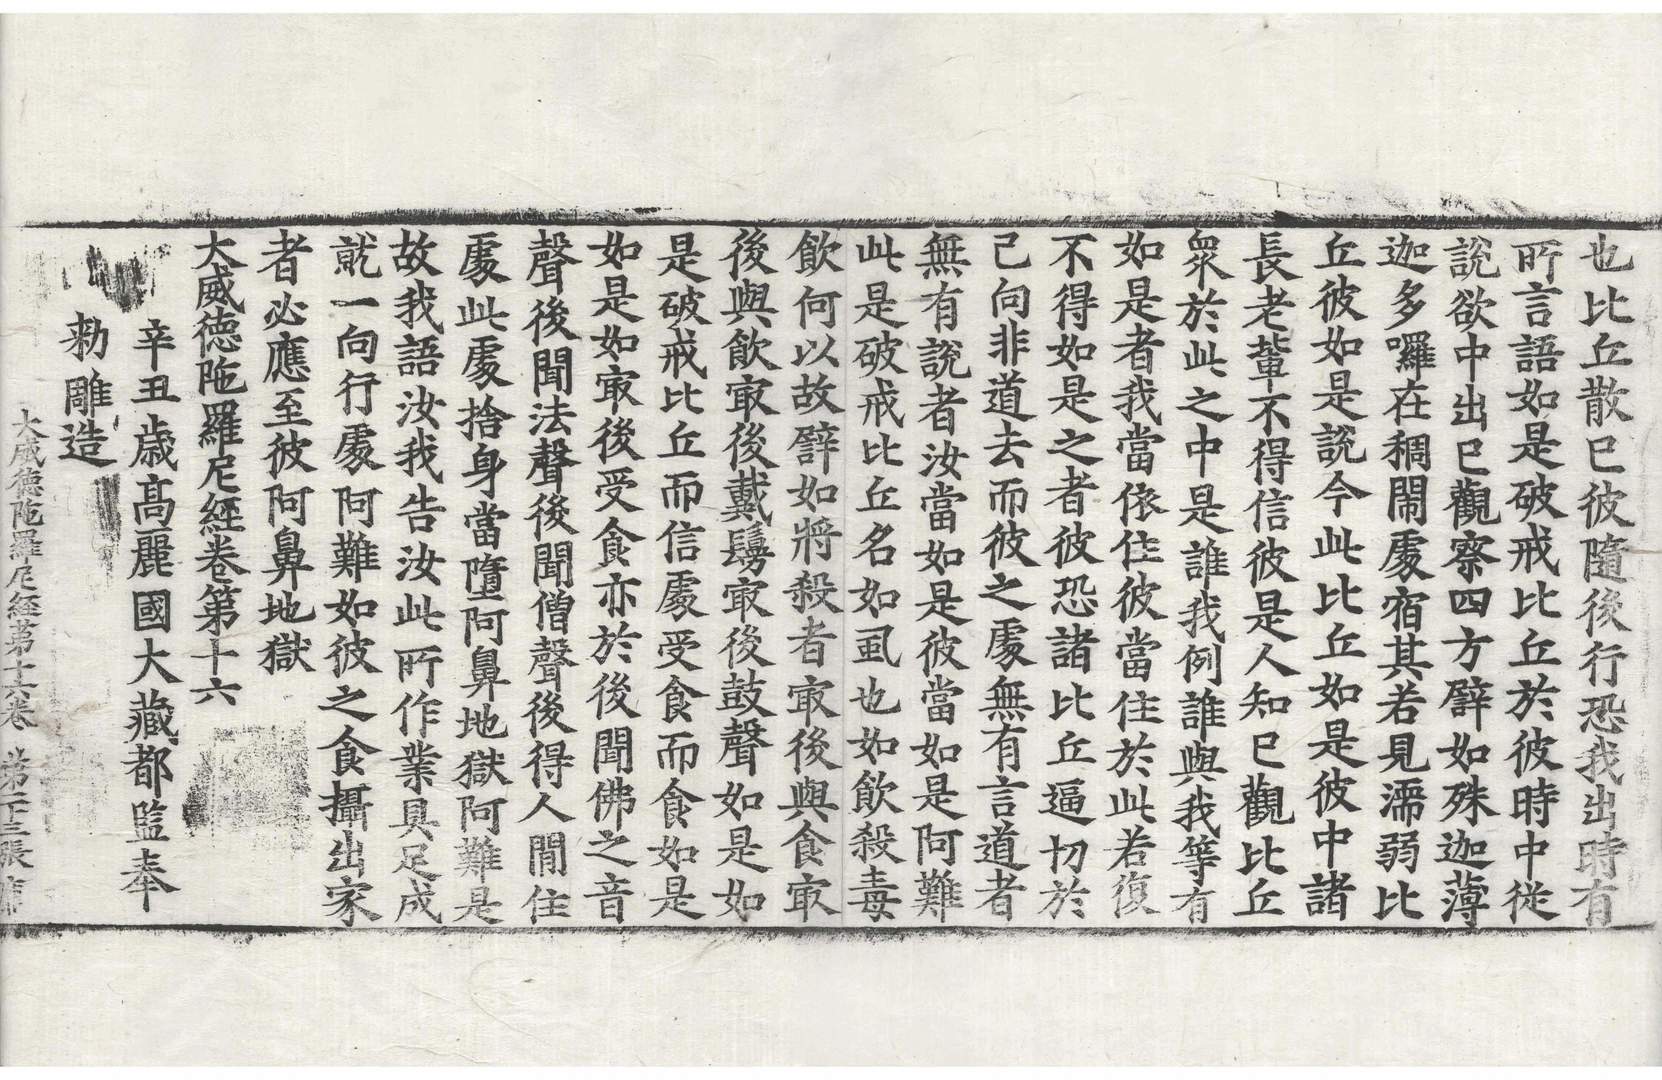 也比丘散已彼隨後行恐我出時有
所言語如是破戒比丘於彼時中從
說欲中出已觀察四方譬如殊迦薄
迦多囉在稠閙處宿其若見濡弱比
丘彼如是說今此比丘如是彼中諸
長老輩不得信彼是人知已觀比丘
衆於此之中是誰我例誰與我等有
如是者我當依住彼當住於此若復
不得如是之者彼恐諸比丘逼切於
己向非道去而彼之處無有言道者
無有說者汝當如是彼當如是阿難
此是破戒比丘名如虱也如飮殺毒
飮何以故譬如將殺者㝡後與食㝡
後與飮㝡後戴鬘㝡後鼓聲如是如
是破戒比丘而信處受食而食如是
如是如㝡後受食亦於後聞佛之音
聲後聞法聲後聞僧聲後得人閒住
處此處捨身當墮阿鼻地獄阿難是
故我語汝我告汝此所作業具足成
就一向行處阿難如彼之食攝出家
者必應至彼阿鼻地獄
大威德陁羅尼經卷第十六
辛丑歲高麗國大藏都監奉
勅雕造
大威德陁羅尼經第十六卷 第二十三張